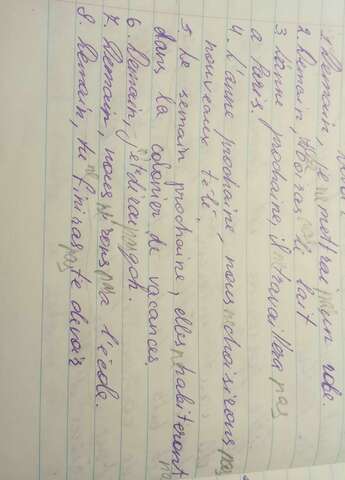 1. Demain, je ne metrai pas un robe.
2. Demain, tu boiras le lait
3. L'anne prochaine, il ne travaillera pas
a Paris
4. L'anne prochaine, nous ne choisirons pas
nouveau télé.
5. De semain prochaine, elles n'habiteront pas
dans la colonier de vacances.
6. Demain, je dirai
7. Demain, nous ne irons pas a l'école.
8. Demain, tu finiras pas te devoir